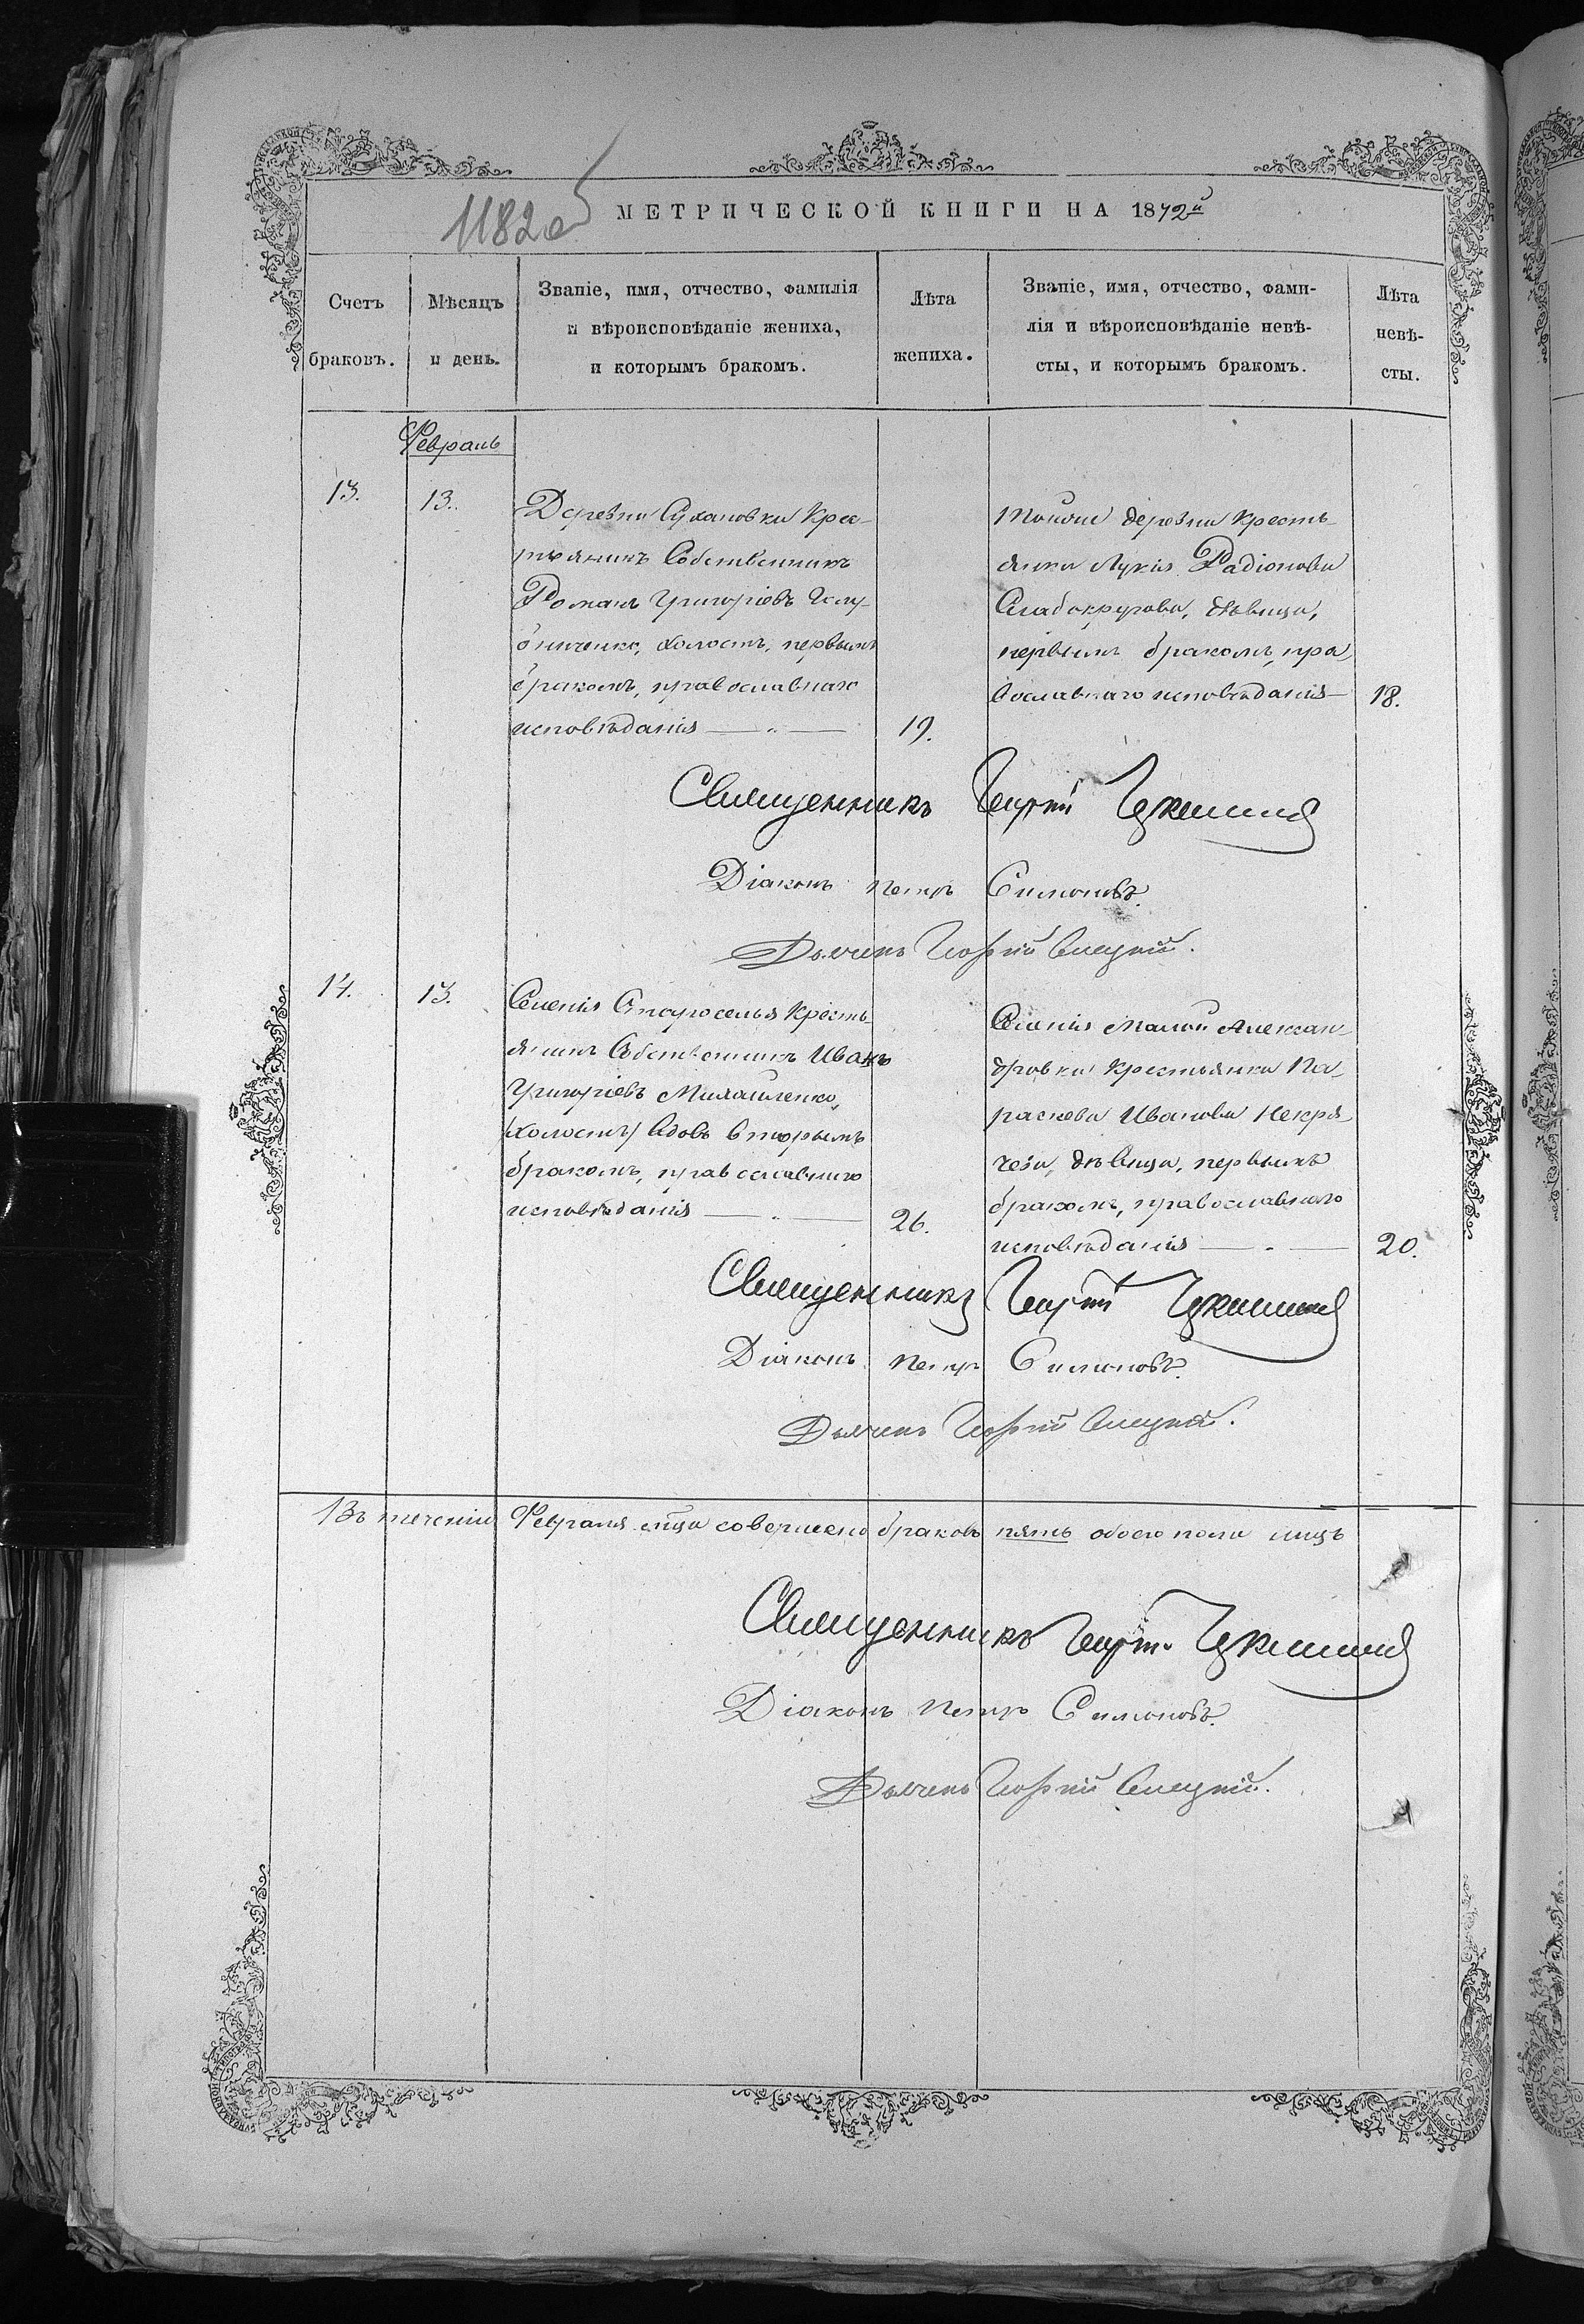 1182 об
МЕТРИЧЕСКОЙ КНИГИ НА 1872й
Счетъ браковъ.
Мѣсяцъ и день.
Званіе, имя, отчество, фамилія
и вѣроисповѣданіе жениха,
и которымъ бракомъ.
Лѣта жениха.
Званіе, имя, отчество, фами-
лія и вѣроисповѣданіе невѣ-
сты, и которымъ бракомъ.
Лѣта
невѣ-
сты.
Февраль
13.
13.
Деревни Сухановки Крес-
тьянинъ Собственникъ
Романъ Григоріевъ
холостъ, первымъ
бракомъ, православнаго
исповѣданія
19.
тойже деревни Кресть-
янка Лукія Радіонова
Слабокругова, дѣвица,
первымъ бракомъ, пра
вославнаго исповѣданія
18.
Священникъ Георгій
Діаконъ Петръ Симоновъ.
Дьячекъ Георгій
14.
13.
Селенія Староселья Кресть-
янинъ Собственникъ Иванъ
Григоріевъ Михайленко,
(холостъ) вдовъ вторымъ
бракомъ, православнаго
исповѣданія
26.
Селенія Малой Алексан-
дровки Крестьянка Па
раскева Иванова
дѣвица, первымъ
бракомъ, православнаго
исповѣданія
20.
Священникъ Георгій
Діаконъ Петръ Симоновъ.
Дьячекъ Георгій
Въ теченіи Февраля мѣсца совершено браковъ пять обоего пола лицъ
Священникъ Георгій
Діаконъ Петръ Симоновъ.
Дьячекъ Георгій